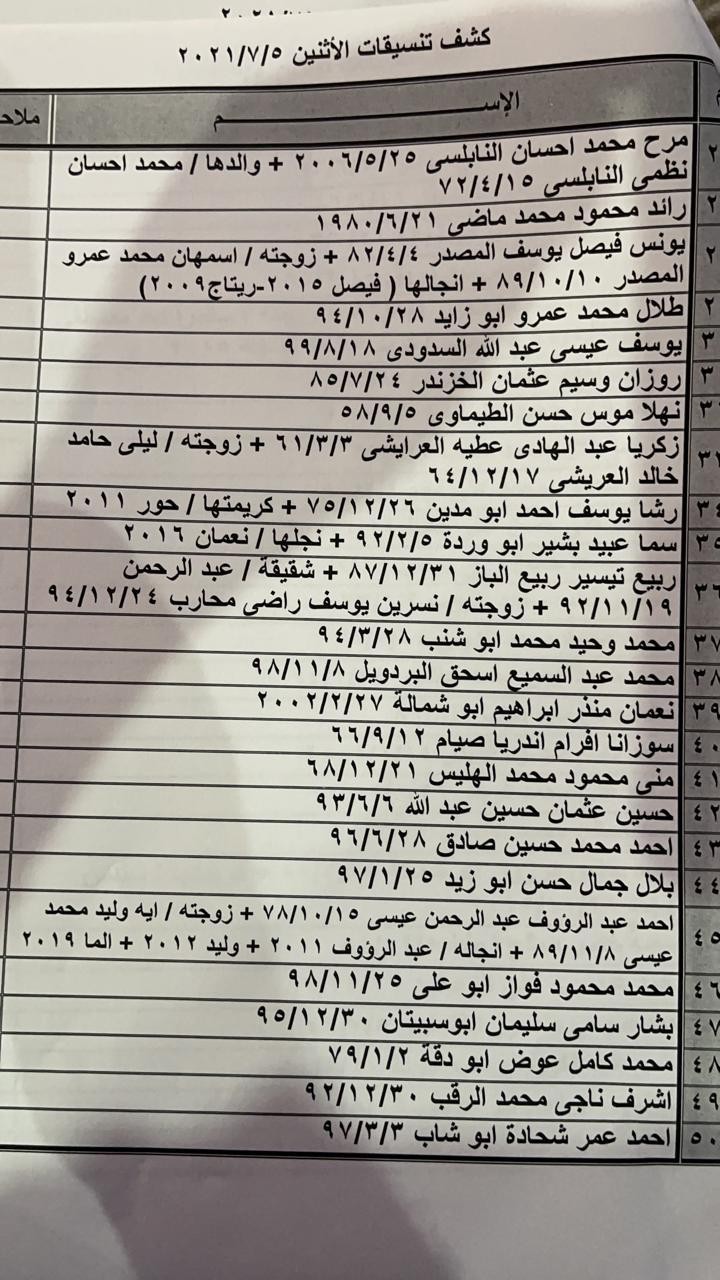 كشف تنسيقات الأثنين ٢٠٢١/٧/٥
الإســـــــــــــــم
ملاحـ
٢ مرح محمد احسان النابلسى ٢٠٠٦/٥/٢٥ + والدها / محمد احسان
نظمى النابلسى ٧٢/٤/١٥
٢ رائد محمود محمد ماضى ١٩٨٠/٦/٢١
٢ يونس فيصل يوسف المصدر ٨٢/٤/٤ + زوجته / اسمهان محمد عمرو
المصدر ٨٩/١٠/١٠ + انجالها ( فيصل ٢٠١٥-ريتاج٢٠٠٩)
٢ طلال محمد عمرو ابو زايد ٩٤/١٠/٢٨
٣ يوسف عيسى عبد الله السدودى ٩٩/٨/١٨
٣ روزان وسيم عثمان الخزندر ٨٥/٧/٢٤
٣ نهلا موس حسن الطيماوى ٥٨/٩/٥
٣ زكريا عبد الهادى عطيه العرايشى ٦١/٣/٣ + زوجته / ليلى حامد
خالد العريشى ٦٤/١٢/١٧
٣٤ رشا يوسف احمد ابو مدين ٧٥/١٢/٢٦ + كريمتها / حور ٢٠١١
٣٥ سما عبيد بشير ابو وردة ٩٢/٢/٥ + نجلها / نعمان ٢٠١٦
٣٦ ربيع تيسير ربيع الباز ٨٧/١٢/٣١ + شقيقة / عبد الرحمن
٩٢/١١/١٩ + زوجته / نسرين يوسف راضى محارب ٩٤/١٢/٢٤
٣٧ محمد وحيد محمد ابو شنب ٩٤/٣/٢٨
٣٨ محمد عبد السميع اسحق البردويل ٩٨/١١/٨
٣٩ نعمان منذر ابراهيم ابو شمالة ٢٠٠٢/٢/٢٧
٤٠ سوزانا افرام اندريا صيام ٦٦/٩/١٢
٤١ منى محمود محمد الهليس ٦٨/١٢/٢١
٤٢ حسين عثمان حسين عبد الله ٩٣/٦/٦
٤٣ احمد محمد حسين صادق ٩٦/٦/٢٨
٤٤ بلال جمال حسن ابو زيد ٩٧/١/٢٥
٤٥ احمد عبد الرؤوف عبد الرحمن عيسى ٧٨/١٠/١٥ + زوجته / ايه وليد محمد
عيسى ٨٩/١١/٨ + انجاله / عبد الرؤوف ٢٠١١ + وليد ٢٠١٢ + الما ٢٠١٩
٤٦ محمد محمود فواز ابو على ٩٨/١١/٢٥
٤٧ بشار سامى سليمان ابوسبيتان ٩٥/١٢/٣٠
٤٨ محمد كامل عوض ابو دقة ٧٩/١/٢
٤٩ اشرف ناجى محمد الرقب ٩٢/١٢/٣٠
٥٠ احمد عمر شحادة ابو شاب ٩٧/٣/٣